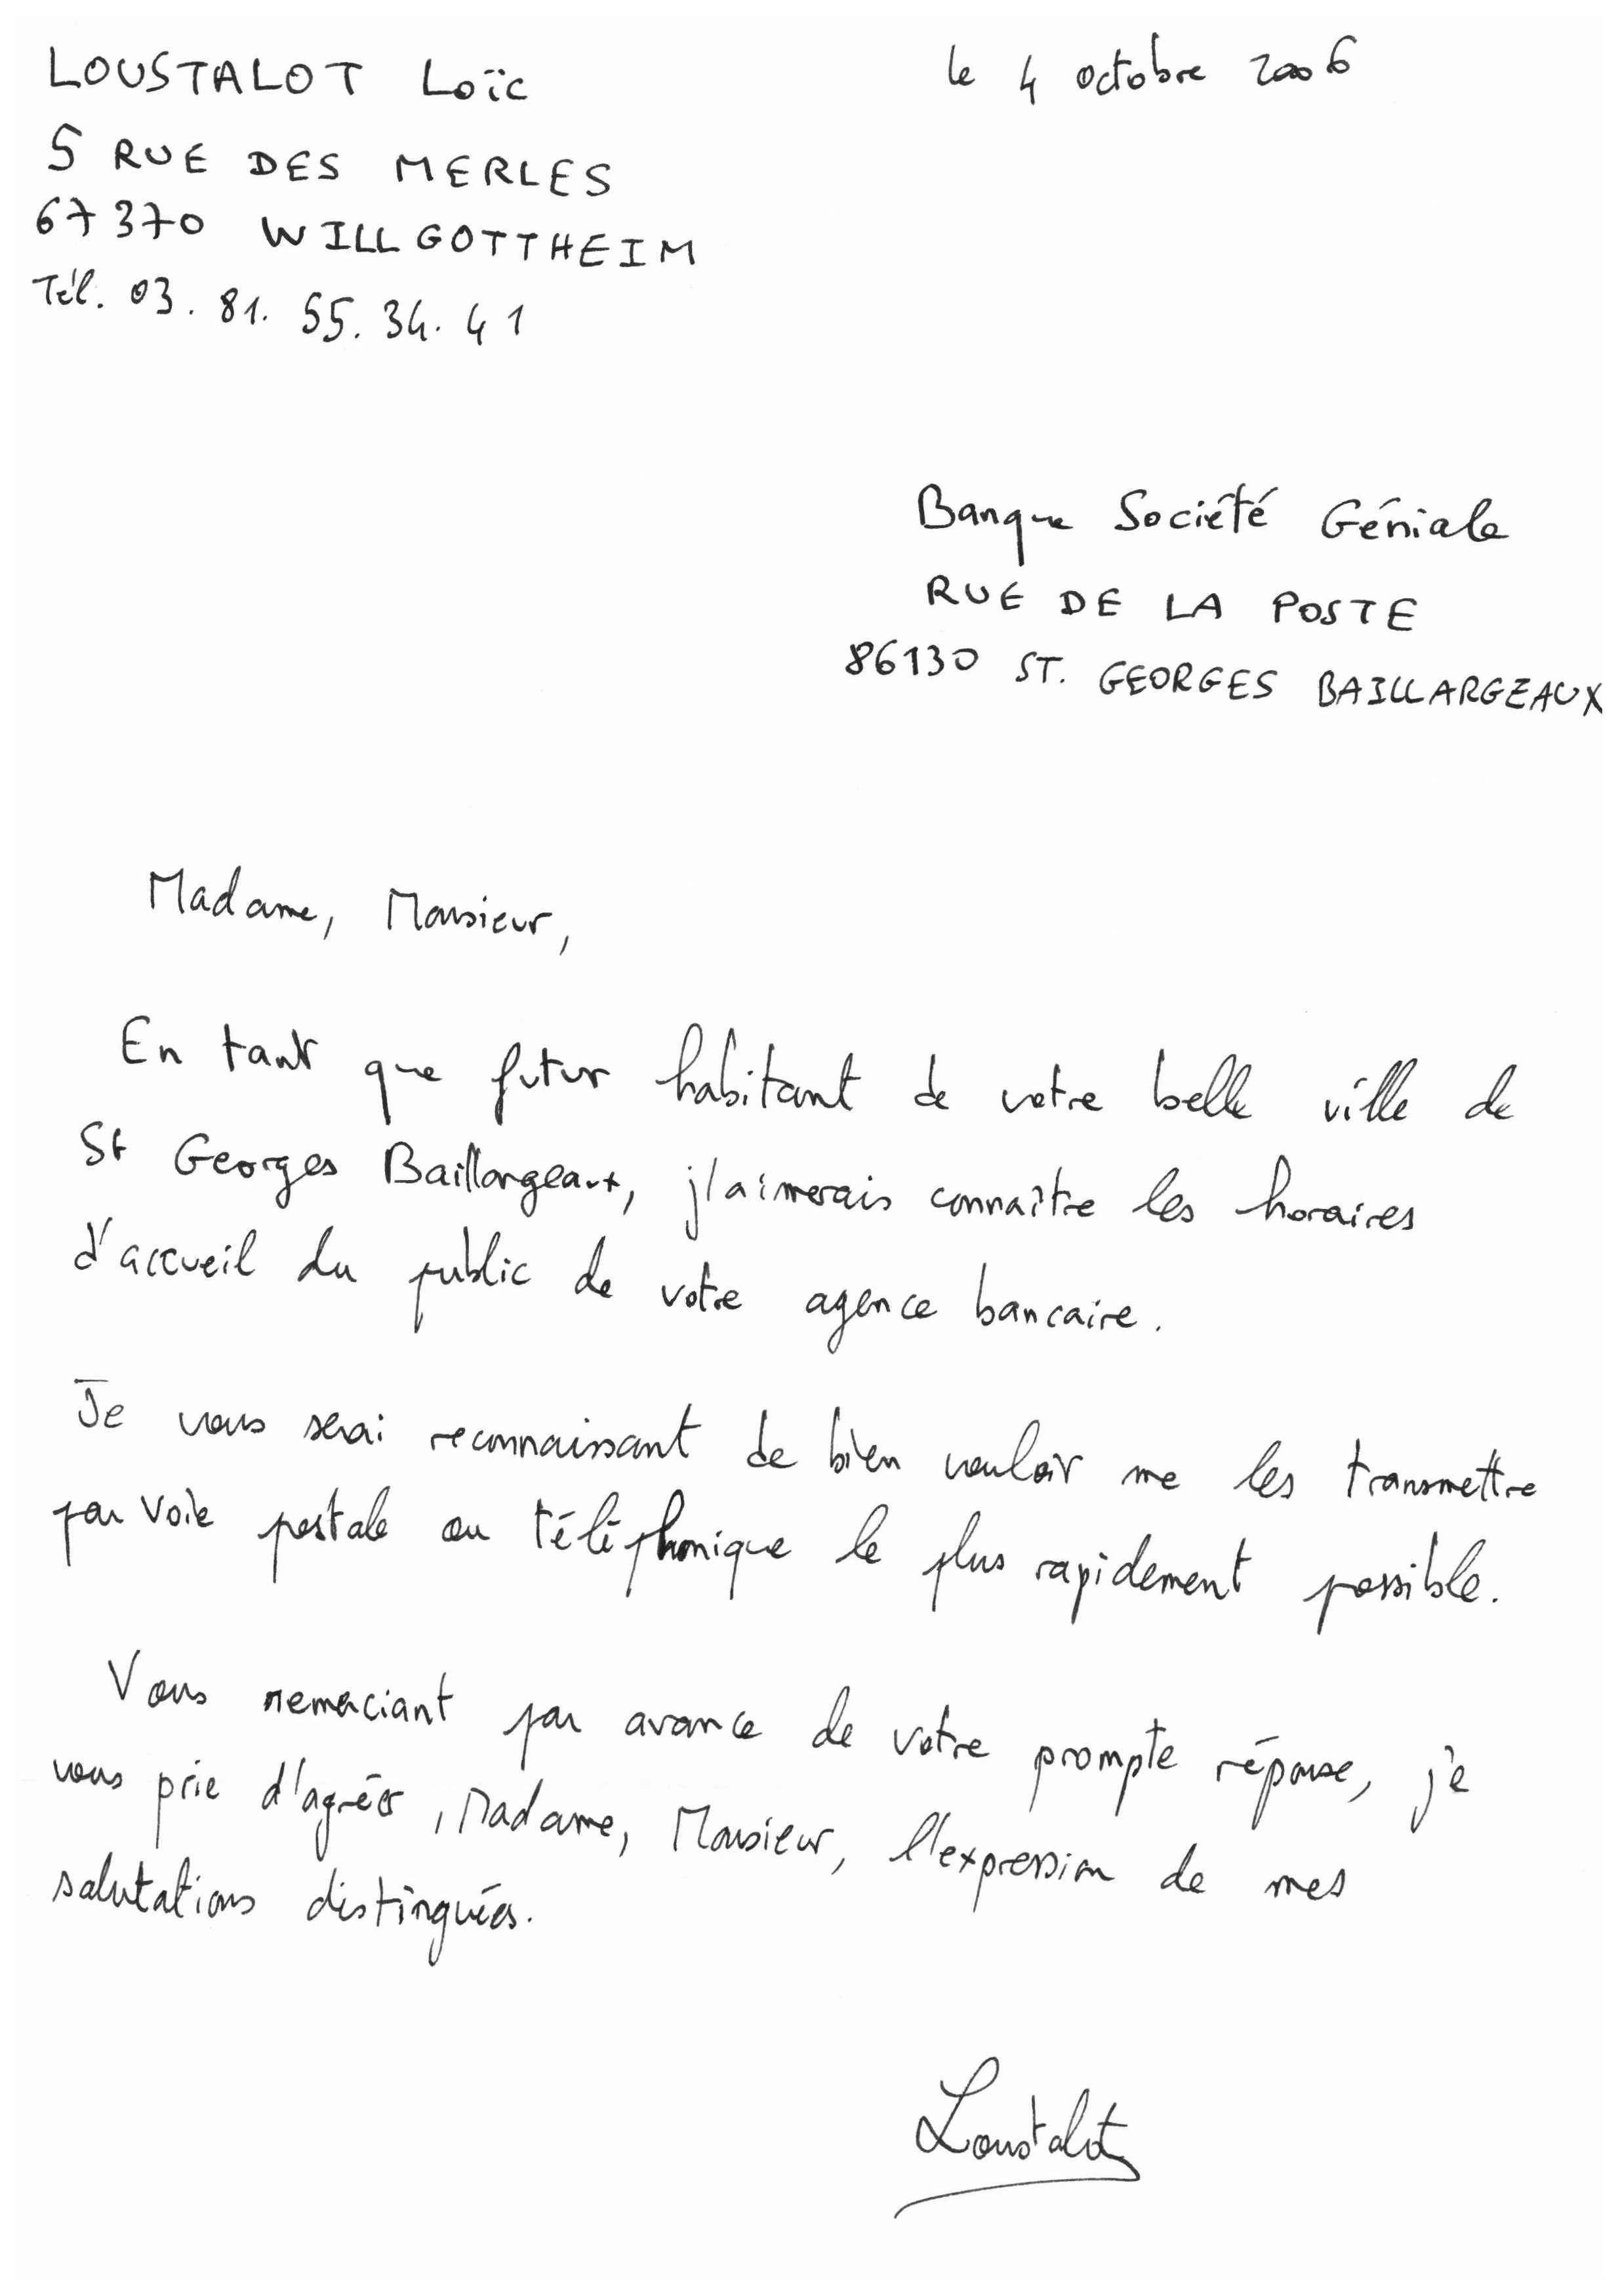 LOUSTALOT Loïc
le 4 octobre 2006
5 RUE DES MERLES
67370 WILLGOTTHEIM
Tél. 03. 81. 55. 34. 41
Banque Société Géniale
RUE DE LA POSTE
86130 ST. GEORGES BAILLARGEAUX
Madame, Monsieur,
En tant que futur habitant de votre belle ville de
St Georges Baillargeaux, j'aimerais connaître les horaires
d'accueil du public de votre agence bancaire.
Je vous serai reconnaissant de bien vouloir me les transmettre
par voie postale ou téléphonique le plus rapidement possible.
Vous remerciant par avance de votre prompte réponse, je
vous prie d'agréer, Madame, Monsieur, l'expression de mes
salutations distinguées.
Loustalot